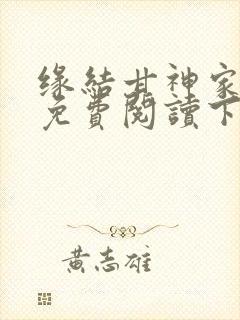 缘結甘神家
免費閱讀下
黃志雄